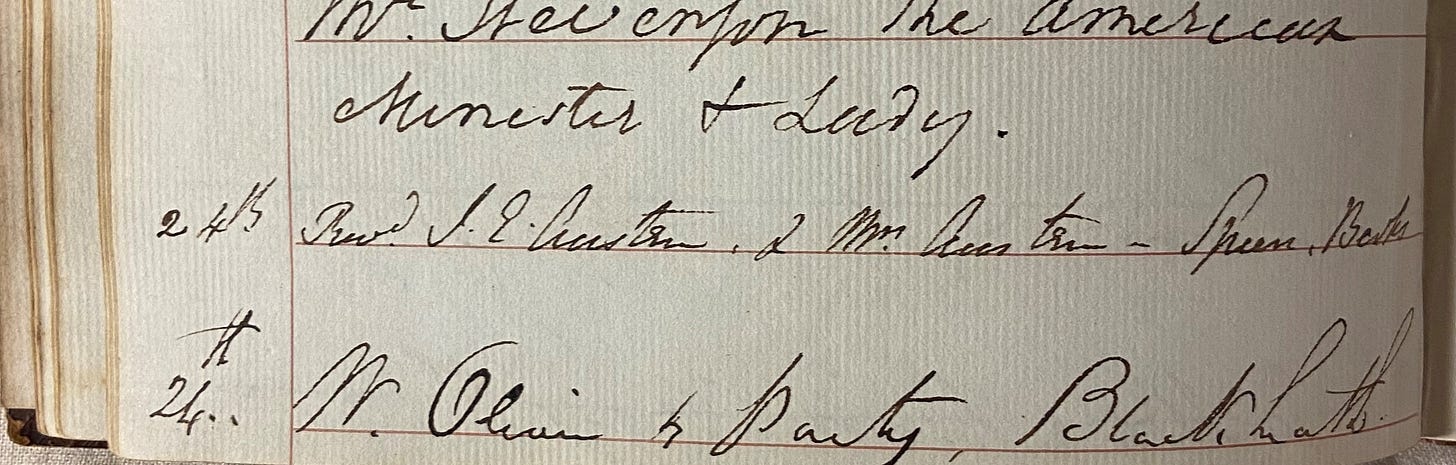 Mr. Stevenson The American
Minister & Lady.
24th Revd. J. E. Austen, & Mrs Austen - Speen, Berks
24th W. Olivier & Party, Blackheath